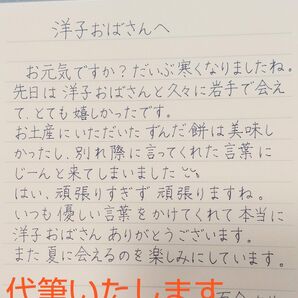 洋子おばさんへ
お元気ですか？だいぶ寒くなりましたね。
先日は洋子おばさんと久々に岩手で会え
て、とても嬉しかったです。
お土産にいただいたずんだ餅は美味し
かったし、別れ際に言ってくれた言葉に
じーんと来てしまいました
はい、頑張りすぎず頑張りますね。
いつも優しい言葉をかけてくれて本当に
洋子おばさんありがとうございます。
また夏に会えるのを楽しみにしています。
代筆いたします